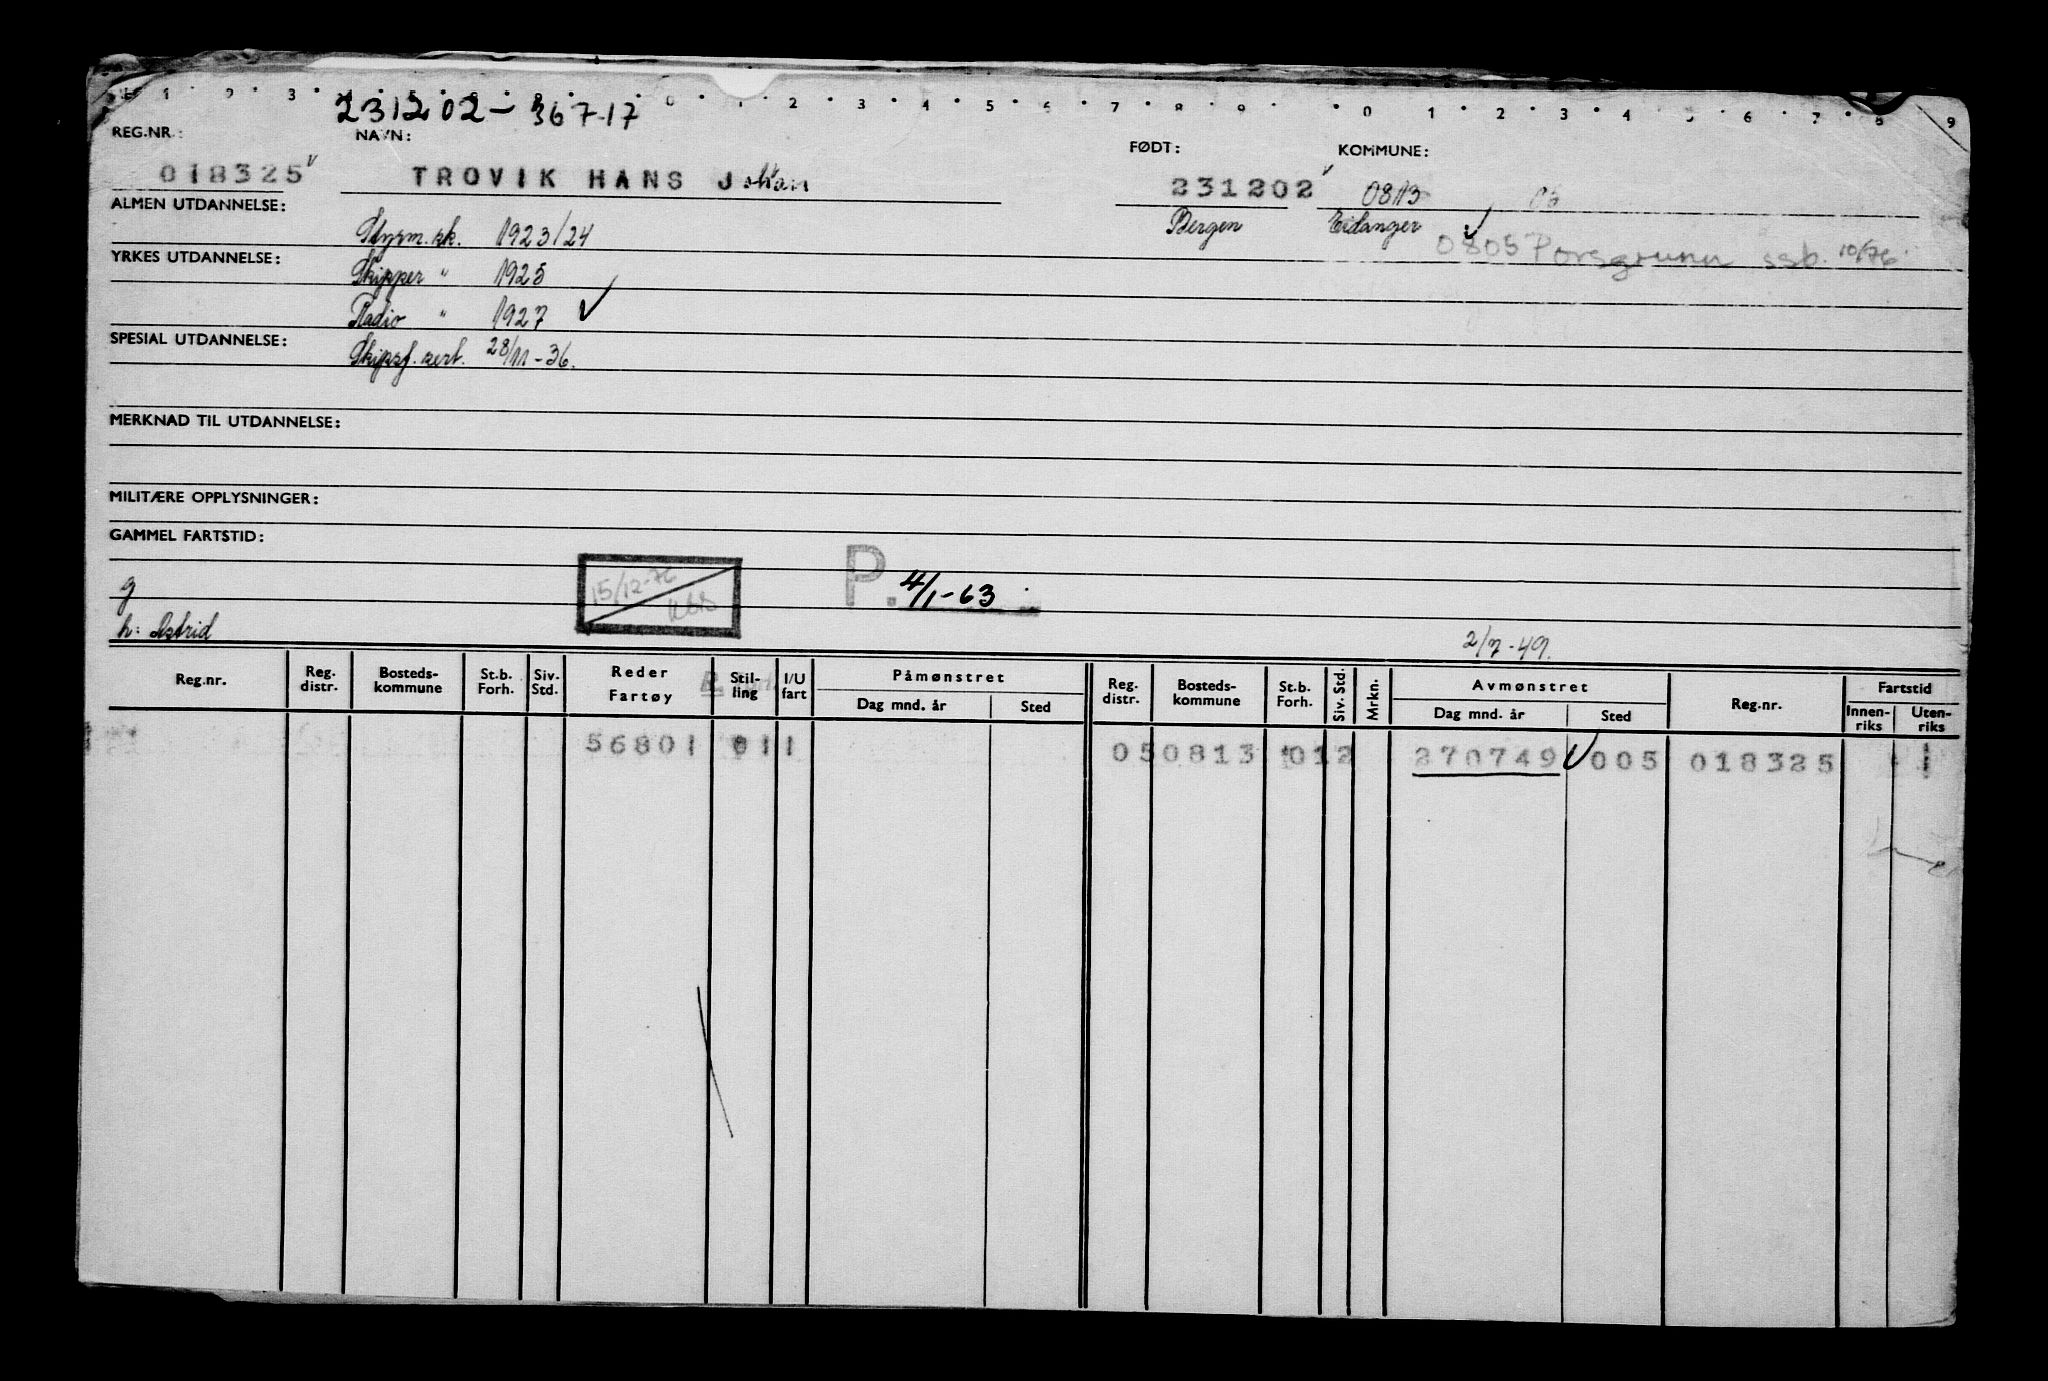 1 · 2 · 3 · 0 · 1 · 2 · 3 · 4 · 5 · 6 · 7 · 8 · 9 · 0 · 1 · 2 · 3 · 4 · 5 · 6 · 7 · 8 9
231202 - 36717
REG.NR.: NAVN: FØDT: KOMMUNE:
018325 TROVIK HANS Johan 231202 0813 06
ALMEN UTDANNELSE: Styrm.sk. 1923/24 Bergen Eidanger
0805 Porsgrunn ssb. 10/76
YRKES UTDANNELSE: Skipper " 1925
Radio " 1927
SPESIAL UTDANNELSE: Skipsf. sert. 28/11-36.
MERKNAD TIL UTDANNELSE:
MILITÆRE OPPLYSNINGER:
GAMMEL FARTSTID:
g 15/12-76 P. 4/1-63
h: Astrid 2/7-49.
Reg.nr. Reg. distr. Bosteds-kommune St.b. Forh. Siv. Std. Reder Fartøy Stil-ling I/U fart Påmønstret Dag mnd. år Sted Reg. distr. Bosteds-kommune St.b. Forh. Siv. Std. Mrkn. Avmønstret Dag mnd. år Sted Reg.nr. Fartstid Innen-riks Uten-riks
56801 011 050813 012 270749 005 018325 1